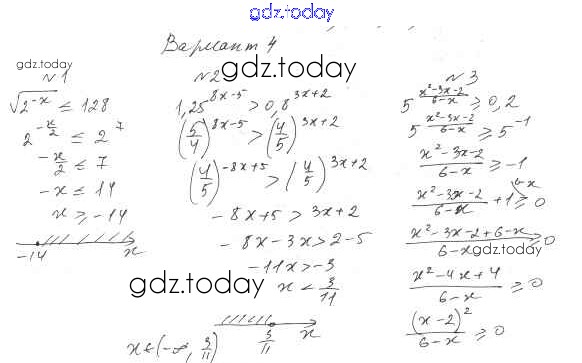 gdz.today
Вариант 4
gdz.today
№1
√2^(-x) ≤ 128
2^(-x/2) ≤ 2^7
-x/2 ≤ 7
-x ≤ 14
x ≥ -14
-14 x
№2
gdz.today
1,25^(8x-5) > 0,8^(3x+2)
(5/4)^(8x-5) > (4/5)^(3x+2)
(4/5)^(-8x+5) > (4/5)^(3x+2)
-8x+5 > 3x+2
-8x-3x > 2-5
-11x > -3
gdz.today
x < 3/11
3/11 x
x ∈ (-∞, 3/11)
№3
5^((x²-3x-2)/(6-x)) ≥ 0,2
5^((x²-3x-2)/(6-x)) ≥ 5^(-1)
(x²-3x-2)/(6-x) ≥ -1
(x²-3x-2)/(6-x) + 1\6-x ≥ 0
(x²-3x-2+6-x)/(6-x) ≥ 0
gdz.today
(x²-4x+4)/(6-x) ≥ 0
(x-2)²/(6-x) ≥ 0